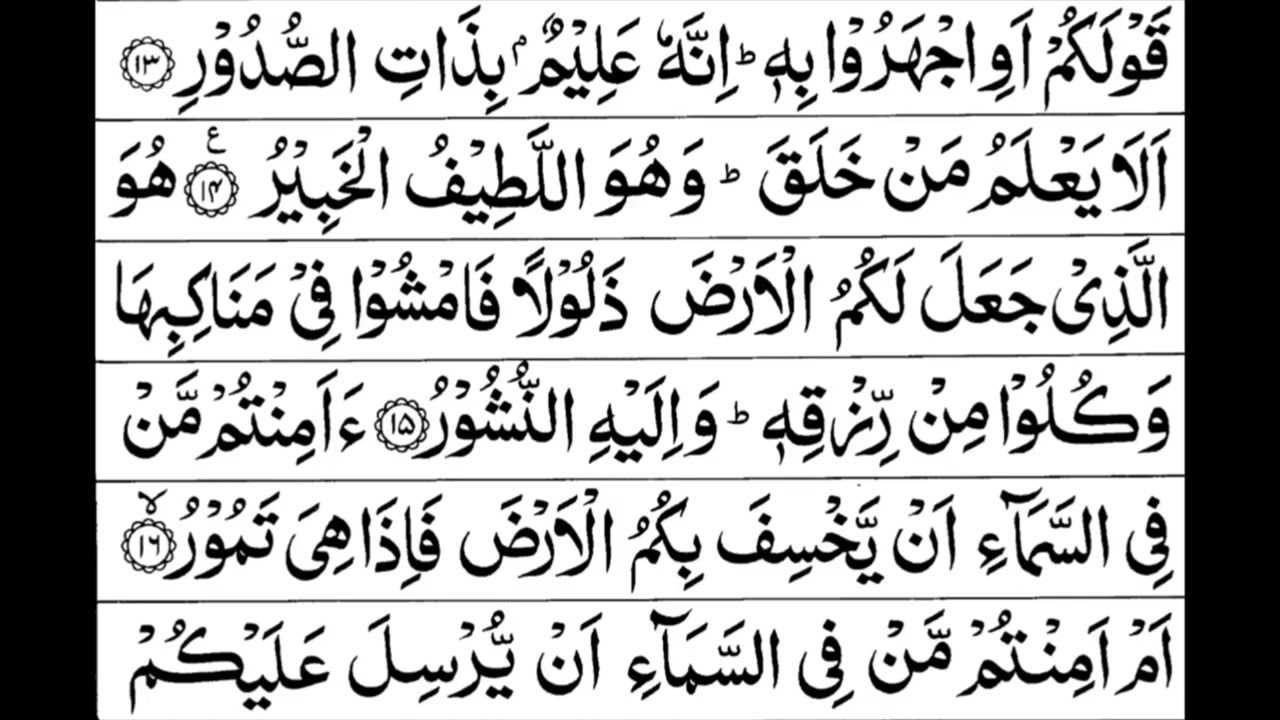 قَوۡلَكُمۡ اَوِ اجۡهَرُوۡا بِهٖ ؕ اِنَّهٗ عَلِيۡمٌۢ بِذَاتِ الصُّدُوۡرِ ﴿۱۳﴾
اَلَا يَعۡلَمُ مَنۡ خَلَقَ ؕ وَهُوَ اللَّطِيۡفُ الۡخَبِيۡرُ ﴿۱۴﴾ ع هُوَ
الَّذِىۡ جَعَلَ لَكُمُ الۡاَرۡضَ ذَلُوۡلًا فَامۡشُوۡا فِىۡ مَنَاكِبِهَا
وَكُلُوۡا مِنۡ رِّزۡقِهٖ ؕ وَاِلَيۡهِ النُّشُوۡرُ ﴿۱۵﴾ ءَاَمِنۡتُمۡ مَّنۡ
فِى السَّمَآءِ اَنۡ يَّخۡسِفَ بِكُمُ الۡاَرۡضَ فَاِذَا هِىَ تَمُوۡرُ ﴿۱۶﴾ ۙ
اَمۡ اَمِنۡتُمۡ مَّنۡ فِى السَّمَآءِ اَنۡ يُّرۡسِلَ عَلَيۡكُمۡ